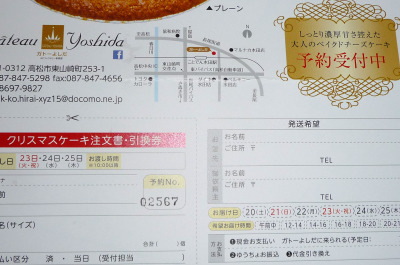 ▲プレーン
しっとり濃厚甘さ控えた
大人のベイクドチーズケーキ
予約受付中
âteau Yoshida
ガトーよしだ
-0312 高松市東山崎町253-1
087-847-5298 fax087-847-4656
8697-9827
k-ko.hirai-xyz15@docomo.ne.jp
クリスマスケーキ注文書・引換券
し日 23日・24日・25日
(火・祝) (水) (木)
お渡し時間
予約No.
02567
名(サイズ)
合計(
払い区分 済・当日(受付担当
発送希望
お名前
ご住所 〒
TEL
お名前
ご住所 〒
TEL
お届け日 20(土) 21(日) 22(月) 23(火・祝) 24(水) 25(木
希望お届け時間 午前中 12-14 14-16 16-18 18-20 19-21
お支払方法
①現金お支払い ガトーよしだに来られる(予定日:
②ゆうちょお振込 ③代金引き換え